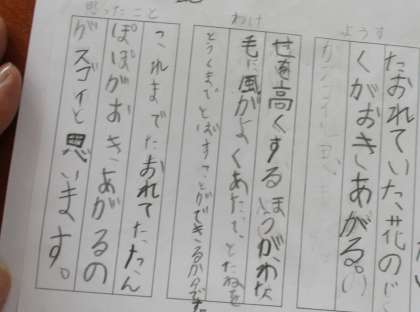 ようす
たおれていた、花のじ
くがおきあがる。
わけ
せを高くするほうが、わた
毛に風がよくあたって、たねを
とおくまでとばすことができるからです。
思ったこと
これまでたおれてたたん
ぽぽがおきあがるの
がスゴイと思います。